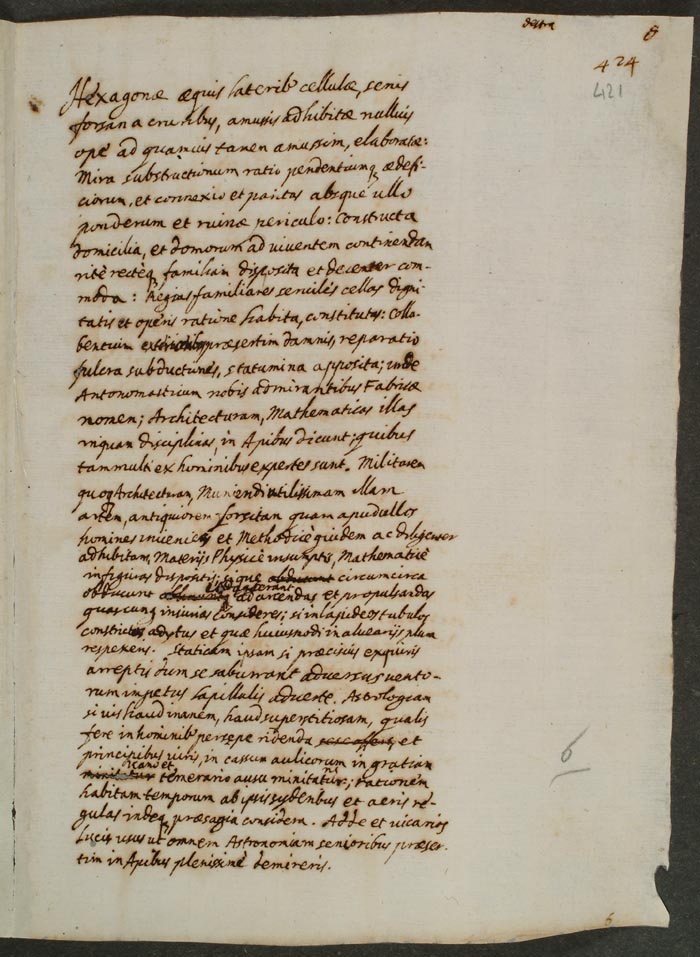 dextra
6
424
421
Hexagonæ æquis laterib' cellulæ, senis
forsan a cruribus, amussis adhibitæ nullius
ope ad quamuis tamen amussim, elaboratæ:
Mira substructionum ratio pendentiumq ædefi-
ciorum, et connexio et paritas absque ullo
ponderum et ruinæ periculo: Constructa
domicilia, et domorum ad viventem continendam
ritè rectèq familiam disposita et decenter com-
moda: Regias familiares seruiles cellas digni-
tatis et operis ratione habita, constitutas: Colla-
bentium præsertim damnis, reparatio
fulcra subductiones, statumina apposita; inde
Antonomasticum nobis admirantibus Fabricæ
nomen; Architecturam, Mathematicas illas
inquam disciplinas, in Apibus dicunt; quibus
tam multi ex hominibus expertes sunt. Militarem
quoq Architecturam, Muniendi utilissimam illam
artem, antiquiorem forsitan quam apud illos
homines inuenies et Methodicè quidem ac diligenter
adhibitam, Materijs Physicè insumptis, Mathematicè
in figuras dispositis; si quæ circumcirca
obducunt ad arcendas et propulsandas
quascunq iniurias consideres; si in lapideos tubulos
constrictos adytus et quæ huiusmodi in aluearijs plurima
respexeris. Staticam ipsam si præcisius exquiris
arreptis dum se saburrant aduersus vento-
rum impetus lapillulis aduerte. Astrologiam
si uis haud inanem, haud superstitiosam, qualis
fere in hominib' persepe ridenda et
principibus uiris, in cassum aulicorum in gratiam
temerario ausu minitatur; rationem
habitam temporum ab ipsis syderibus et aeris re-
gulas indeq præsagia considera. Adde et uicarios
Lucis usus ut omnem Astronomiam senioribus præser-
tim in Apibus plenissimè demireris.
6
6